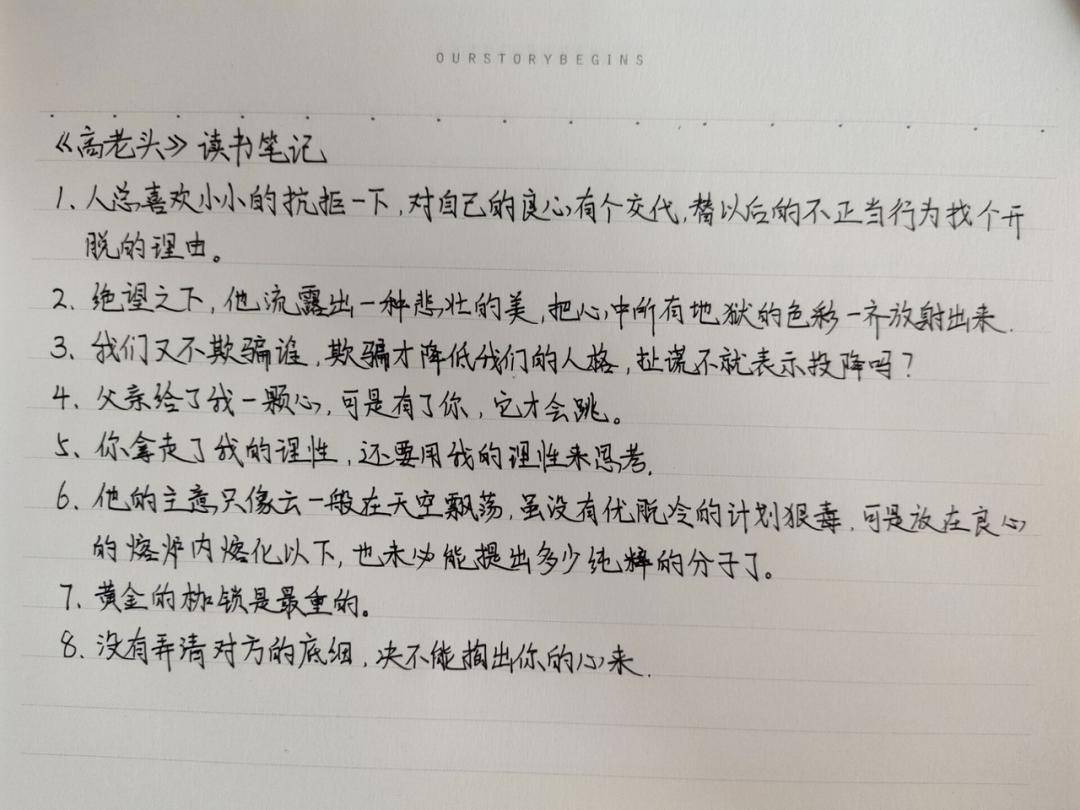 OURSTORYBEGINS
《高老头》读书笔记
1、人总喜欢小小的抗拒一下,对自己的良心有个交代,替以后的不正当行为找个开
脱的理由。
2、绝望之下,他流露出一种悲壮的美,把心中所有地狱的色彩一齐放射出来.
3、我们又不欺骗谁,欺骗才降低我们的人格,扯谎不就表示投降吗?
4、父亲给了我一颗心,可是有了你,它才会跳。
5、你拿走了我的理性,还要用我的理性来思考.
6、他的主意只像云一般在天空飘荡,虽没有优脱冷的计划狠毒,可是放在良心
的熔炉内熔化以下,也未必能提出多少纯粹的分子了。
7、黄金的枷锁是最重的。
8、没有弄清对方的底细,决不能掏出你的心来.